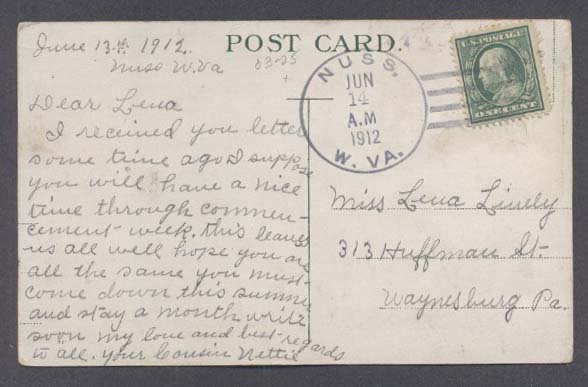 June 13th 1912.
Nuss W.Va
83-25
POST CARD.
NUSS,
JUN
14
A.M
1912
W. VA.
U.S. POSTAGE
ONE CENT
Dear Lena
I received you letter
some time ago I suppose
you will have a nice
time through commen-
cement week. this leaves
us all well hope you are
all the same you must
come down this summer
and stay a month write
soon my love and best regards
to all. your Cousin Nettie
Miss Lena Lively
313 Huffman St-
Waynesburg Pa.